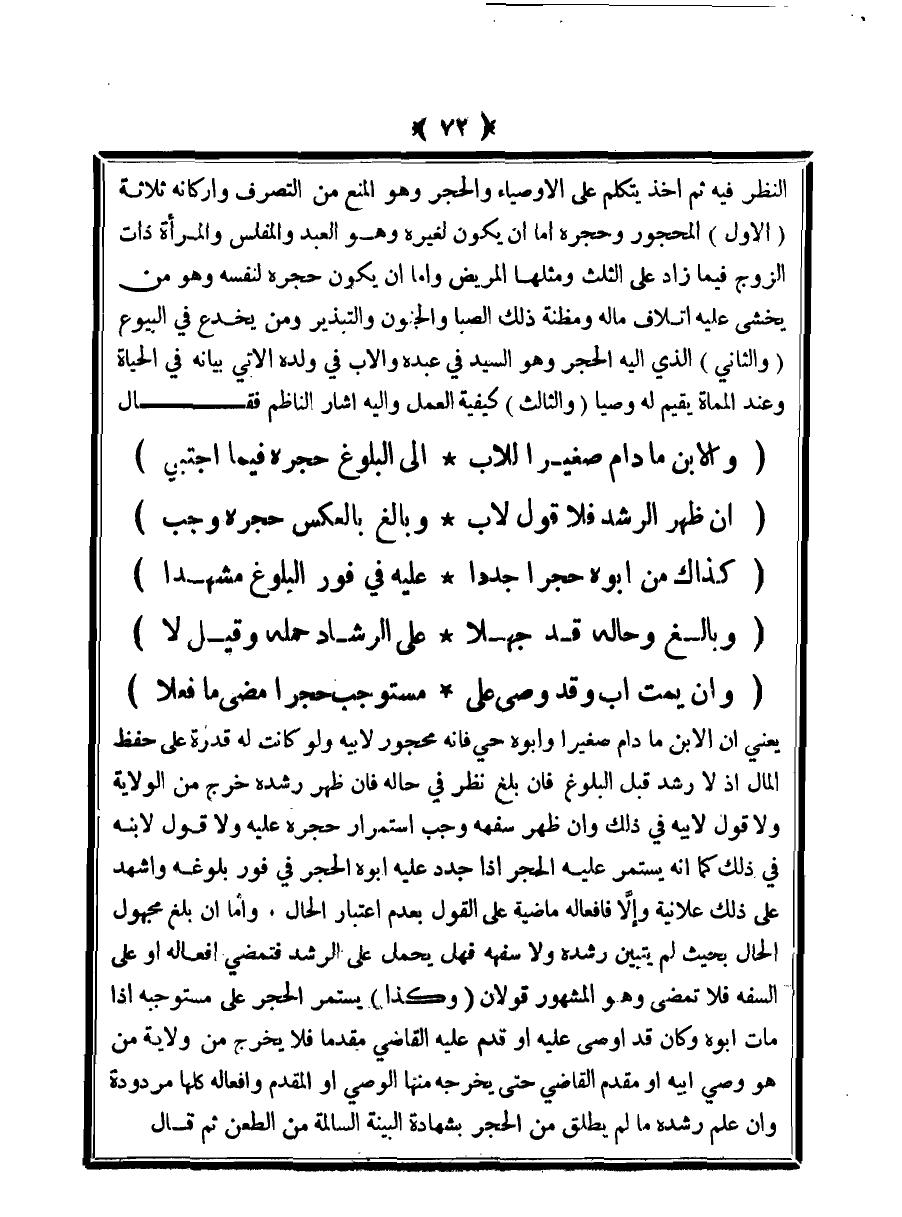 ﴿ ٧٢ ﴾
النظر فيه ثم اخذ يتكلم على الاوصياء والحجر وهو المنع من التصرف واركانه ثلاثة
( الاول ) المحجور وحجره اما ان يكون لغيره وهو العبد والمفلس والمرأة ذات
الزوج فيما زاد على الثلث ومثلها المريض واما ان يكون حجره لنفسه وهو من
يخشى عليه اتلاف ماله ومظنة ذلك الصبا والجنون والتبذير ومن يخدع في البيوع
( والثاني ) الذي اليه الحجر وهو السيد في عبده والاب في ولده الاتي بيانه في الحياة
وعند المماة يقيم له وصيا ( والثالث ) كيفية العمل واليه اشار الناظم فقال
( والابن ما دام صغيرا للاب * الى البلوغ حجره فيما اجتبي )
( ان ظهر الرشد فلا قول لاب * وبالغ بالعكس حجره وجب )
( كذاك من ابوه حجرا جددا * عليه في فور البلوغ مشهدا )
( وبالغ وحاله قد جهلا * على الرشاد حمله وقيل لا )
( وان يمت اب وقد وصى على * مستوجب حجرا مضى ما فعلا )
يعني ان الابن ما دام صغيرا وابوه حي فانه محجور لابيه ولو كانت له قدرة على حفظ
المال اذ لا رشد قبل البلوغ فان بلغ نظر في حاله فان ظهر رشده خرج من الولاية
ولا قول لابيه في ذلك وان ظهر سفهه وجب استمرار حجره عليه ولا قول لابنه
في ذلك كما انه يستمر عليه الحجر اذا جدد عليه ابوه الحجر في فور بلوغه واشهد
على ذلك علانية وإلَّا فافعاله ماضية على القول بعدم اعتبار الحال ٠ وأما ان بلغ مجهول
الحال بحيث لم يتبين رشده ولا سفهه فهل يحمل على الرشد فتمضي افعاله او على
السفه فلا تمضى وهو المشهور قولان ( وكذا ) يستمر الحجر على مستوجبه اذا
مات ابوه وكان قد اوصى عليه او قدم عليه القاضي مقدما فلا يخرج من ولاية من
هو وصي ابيه او مقدم القاضي حتى يخرجه منها الوصي او المقدم وافعاله كلها مردودة
وان علم رشده ما لم يطلق من الحجر بشهادة البينة السالمة من الطعن ثم قال